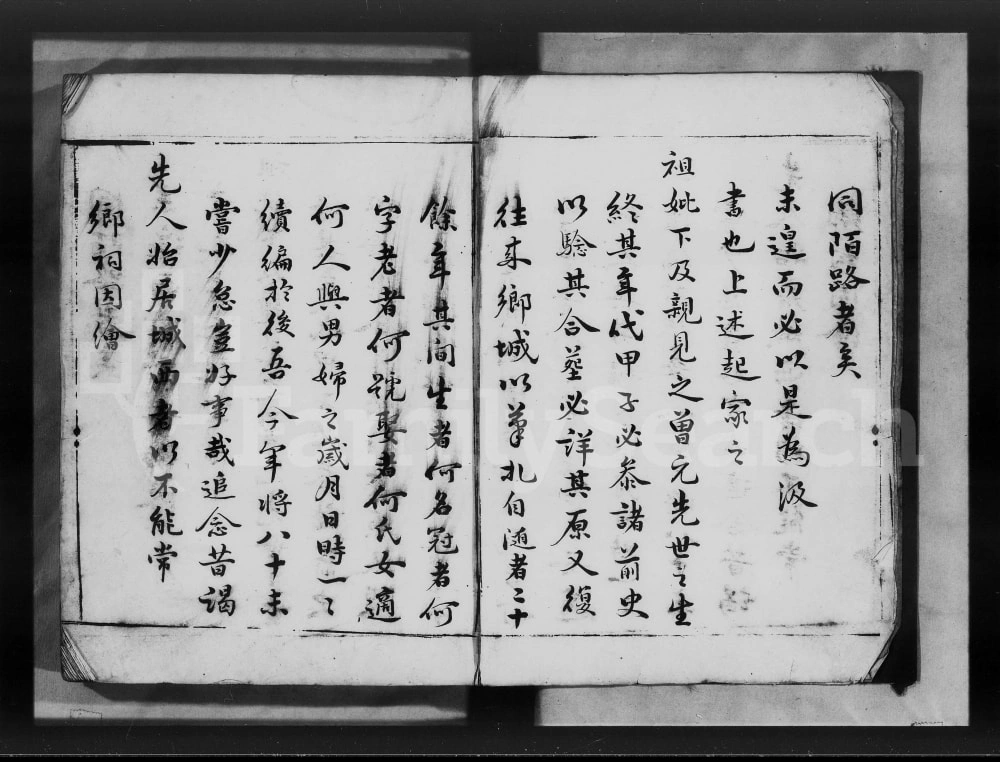 同陌路者矣
未遑而必以是為汲
書也上述起家之
祖妣下及親見之曾元先世之生
終其年代甲子必叅諸前史
以驗其合塟必詳其原又復
往來鄉城以筆札自随者二十
餘年其间生者何名冠者何
字老者何號娶者何氏女適
何人與男婦之歲月日時一〻
續編於後吾今年將八十未
嘗少怠豈好事哉追念昔謁
先人始居城西者以不能常
鄉祠因繪
FamilySearch